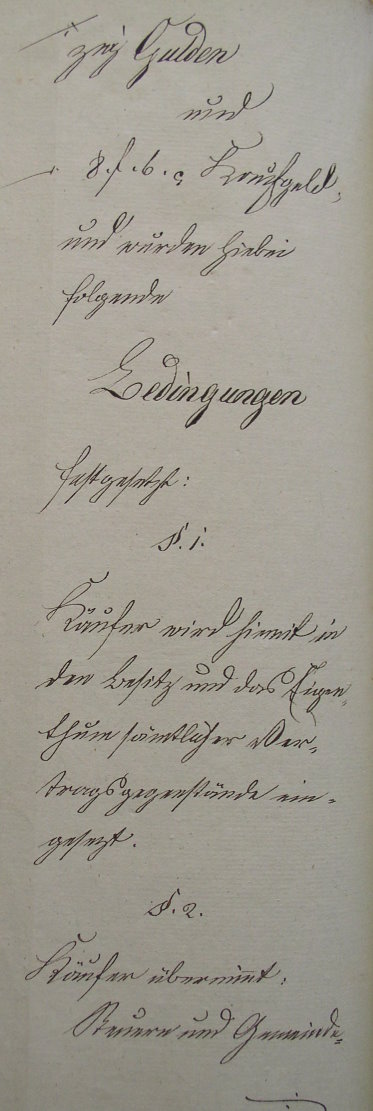 zig Gulden
und
8 f. 6 Kaufgeld,
und wurden hiebei
folgende
Bedingungen
festgesetzt:
§. 1.
Käufer wird hiemit in
den Besitz und das Eigen-
thum sämtlicher Ver-
tragsgegenstände ein-
gesetzt.
§. 2.
Käufer übernimmt:
Steuern und Gemeinde-